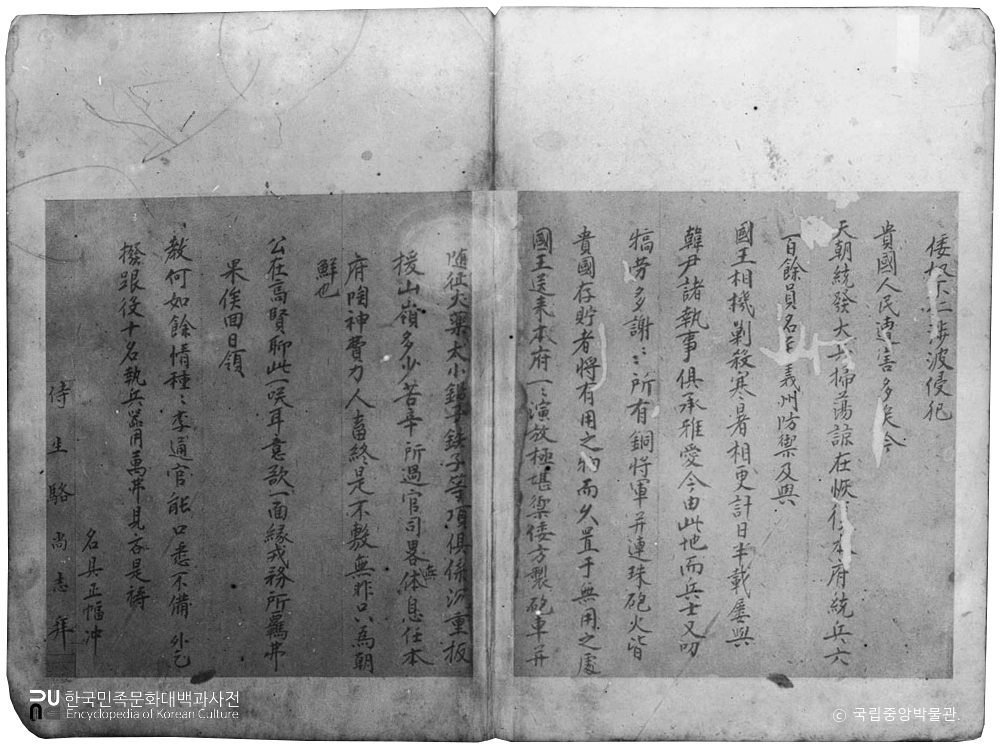 倭奴不仁涉波侵犯
貴國人民遭害多矣今
天朝統發大兵掃蕩諒在恢復本府統兵六
百餘員名至義州防禦及與
國王相機剿殺寒暑相更計日半載屢與
韓尹諸執事俱承雅愛今由此地而兵士又叨
犒勞多謝〻所有銅將軍并連珠砲火皆
貴國存貯者將有用之物而久置于無用之處
國王送來本府一〻演放極堪禦倭方製砲車并
隨征火藥大小鉛子鉄子等項俱係沉重扳
援山嶺多少苦辛所過官司畧無体息任本
府陶神費力人畜終是不敷無非只為朝
鮮也
公在高賢聊此一咲耳意欲一面緣戎務所羈弗
果俟回日領
教何如餘情種〻李通官能口悉不備 外乞
撥跟役十名執兵器用萬弗見吝是禱
名具正幅冲
侍生駱尚志拜
한국민족문화대백과사전
Encyclopedia of Korean Culture
ⓒ 국립중앙박물관.